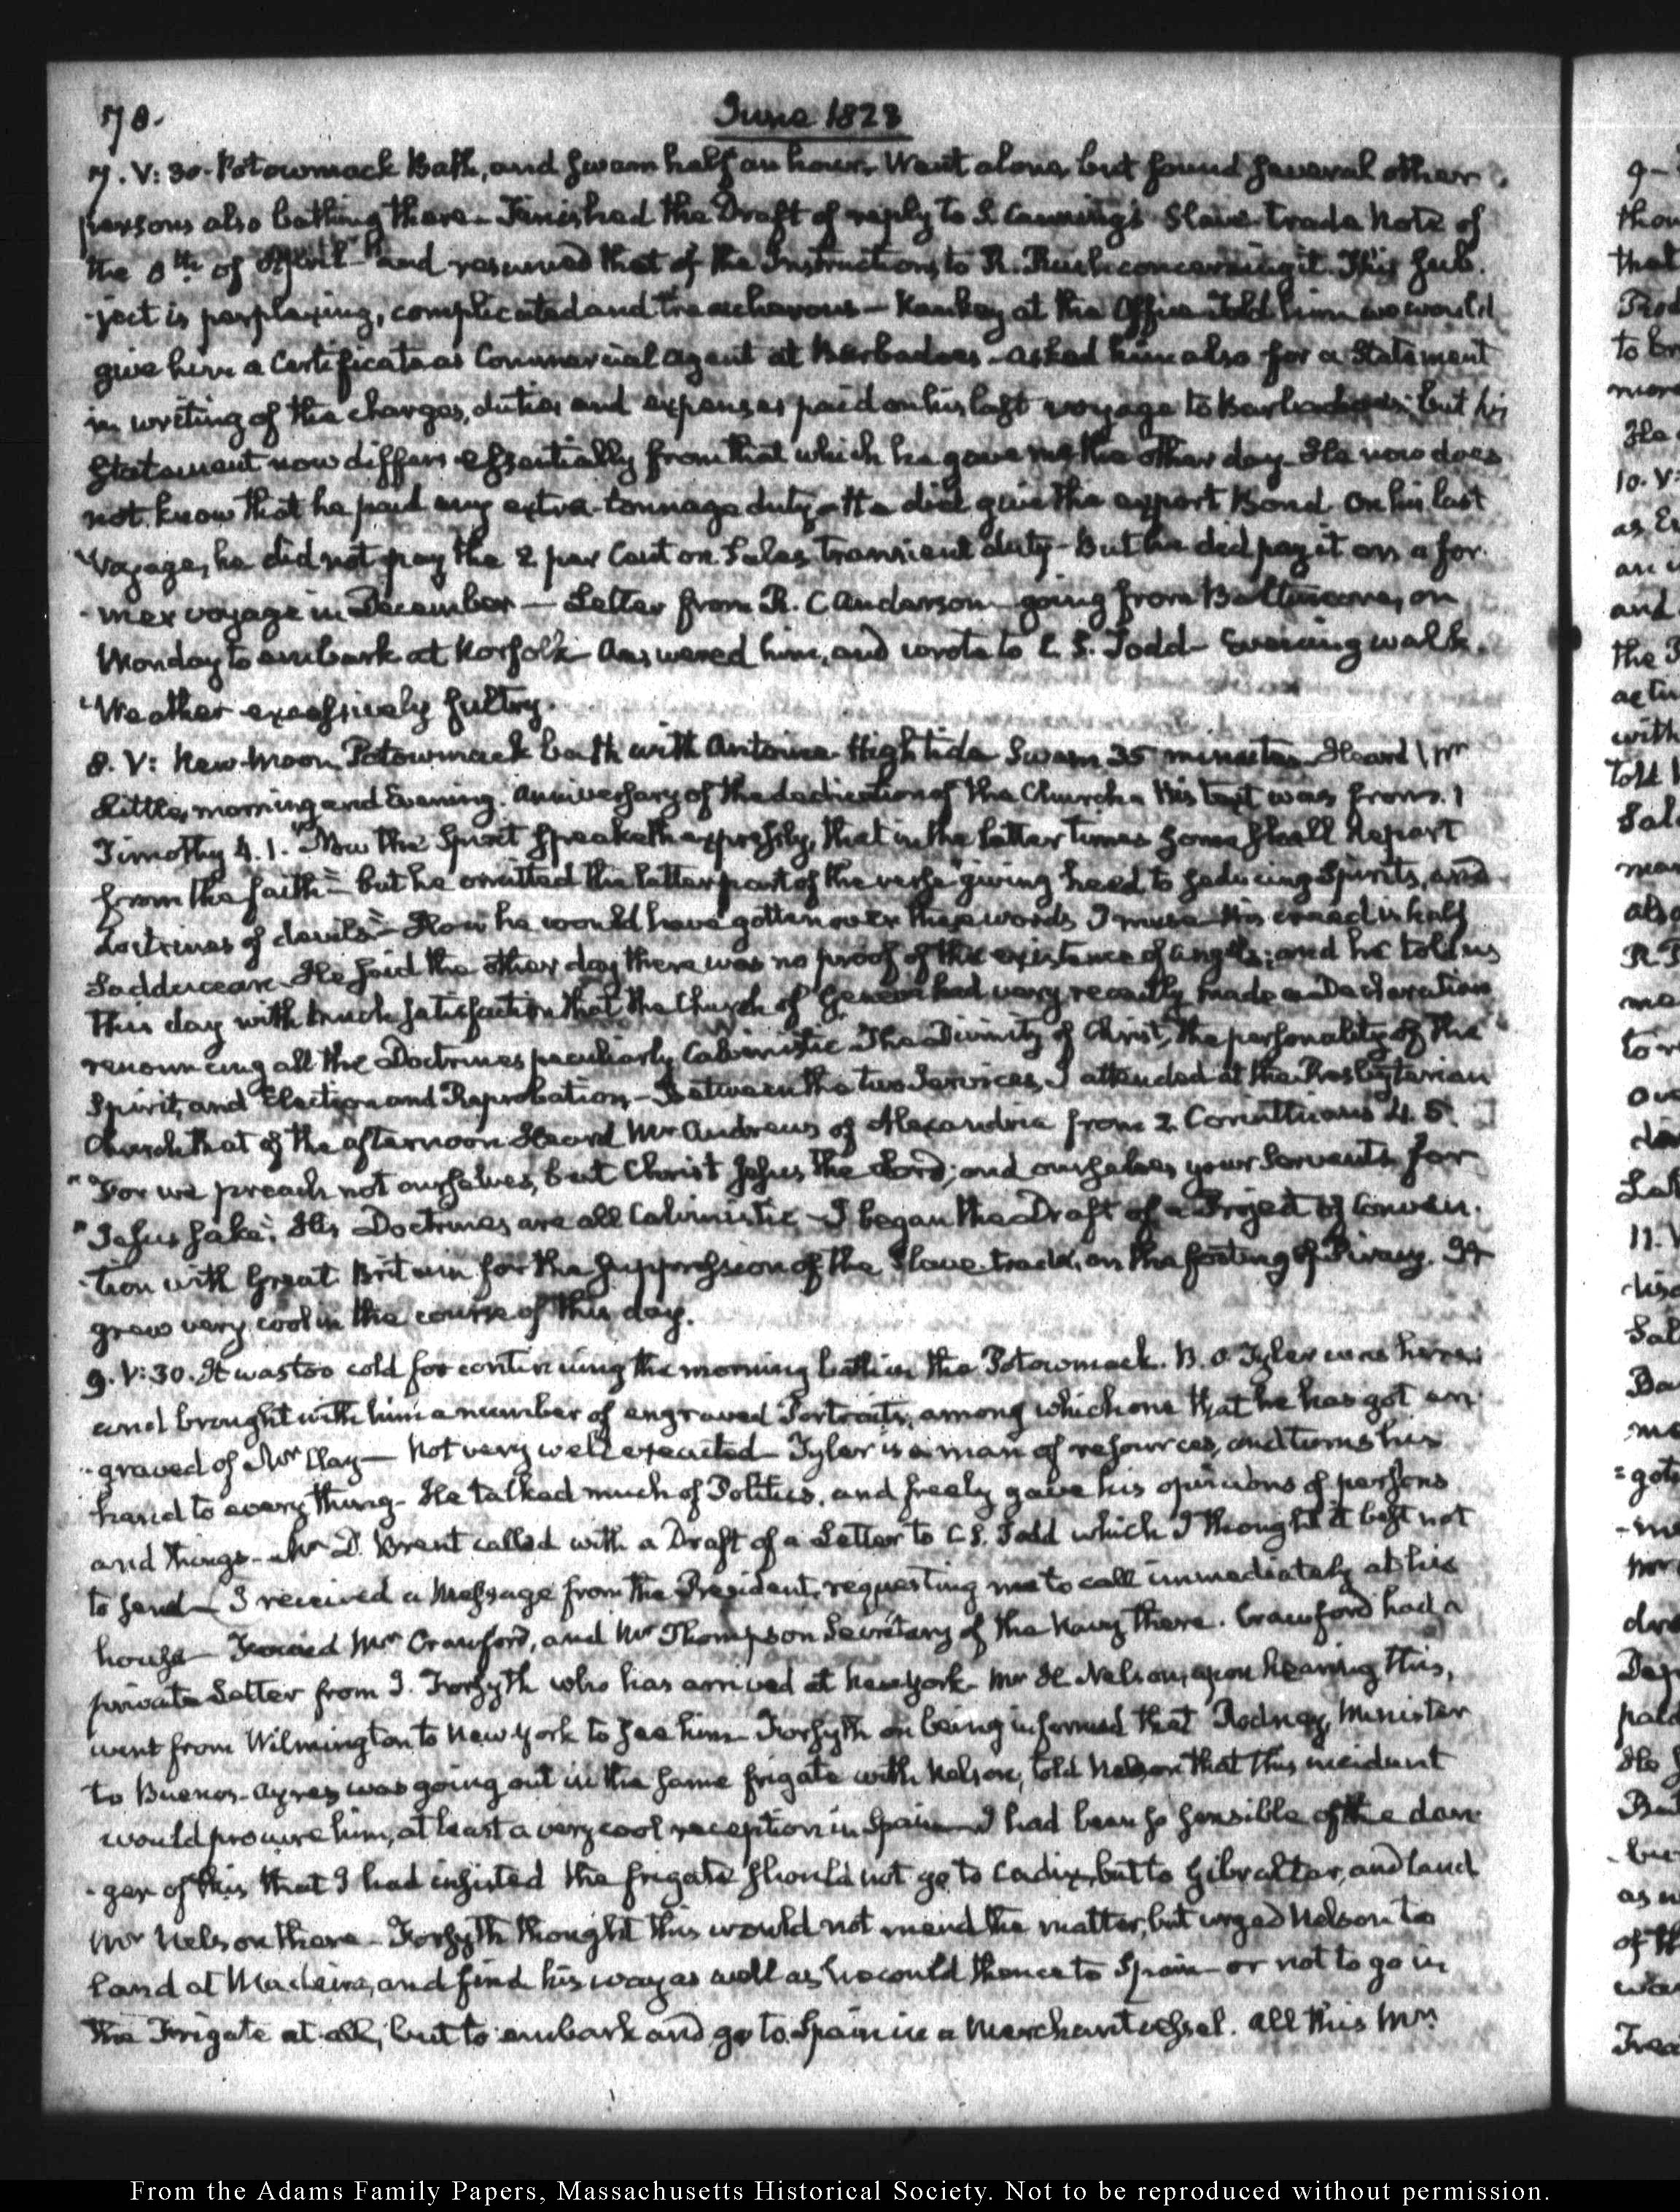 78.
June 1823
7. V:30. Potowmack Bath, and swam half an hour. Went alone, but found several other
persons also bathing there. Finished the Draft of reply to S. Canning's Slave-trade Note of
the 8th. of April and resumed that of the Instructions to R. Rush concerning it. This sub-
-ject is perplexing, complicated and treacherous — Kankey at the Office. Told him we would
give him a Certificate as Commercial Agent at Barbadoes — asked him also for a Statement
in writing of the charges, duties and expenses paid on his last voyage to Barbadoes; but his
Statement now differs essentially from that which he gave me the other day. He now does
not know that he paid any extra-tonnage duty. He did give the export Bond. On his last
voyage, he did not pay the 2 per Cent on Sales transient duty — But he did pay it on a for-
-mer voyage in December — Letter from R. C. Anderson — going from Baltimore, on
Monday to embark at Norfolk — Answered him, and wrote to C. S. Todd — Evening walk.
Weather excessively sultry.
8. V: New-Moon. Potowmack bath with Antoine. High tide. Swam 35 minutes. Heard Mr
Little, morning and Evening. Anniversary of the dedication of the Church. His text was from 1
Timothy 4.1. "Now the Spirit speaketh expressly, that in the latter times some shall depart
from the faith" — but he omitted the latter part of the verse "giving heed to seducing Spirits, and
doctrines of devils" — How he would have gotten over these words I muse — His creed is half
Sadducean. He said the other day there was no proof of the existence of angels; and he told us
this day with much satisfaction that the Church of Geneva had very recently made a Declaration
renouncing all the Doctrines peculiarly Calvinistic — The Divinity of Christ, the personality of the
Spirit, and Election and Reprobation — Between the two Services, I attended at the Presbyterian
Church that of the afternoon. Heard Mr Andrews of Alexandria from 2. Corinthians 4. 5.
"For we preach not ourselves, but Christ Jesus the Lord; and ourselves your Servants for
"Jesus sake." His Doctrines are all Calvinistic — I began the Draft of a Project of Conven-
-tion with Great Britain for the suppression of the Slave trade, on the footing of Piracy. It
grew very cool in the course of this day.
9. V:30. It was too cold for continuing the morning bath in the Potowmack. B. O. Tyler was here;
and brought with him a number of engraved Portraits, among which one that he has got en-
-graved of Mr Clay — Not very well executed — Tyler is a man of resources, and turns his
hand to every thing — He talked much of Politics, and freely gave his opinions of persons
and things — Mr D. Brent called with a Draft of a Letter to C. S. Todd which I thought it best not
to send — I received a Message from the President, requesting me to call immediately at his
house — Found Mr Crawford, and Mr Thompson Secretary of the Navy there. Crawford had a
private Letter from J. Forsyth who has arrived at New York. Mr H. Nelson, upon hearing this,
went from Wilmington to New York to see him. Forsyth on being informed that Rodney, Minister
to Buenos-Ayres was going out in the same frigate with Nelson, told Nelson that this incident
would procure him, at least a very cool reception in Spain — I had been so sensible of the dan-
-ger of this that I had insisted the frigate should not go to Cadiz, but to Gibraltar, and land
Mr Nelson there — Forsyth thought this would not mend the matter, but urged Nelson to
land at Madeira, and find his way as well as he could thence to Spain — or not to go in
the Frigate at all, but to embark and go to Spain in a Merchant vessel. All this Mr
From the Adams Family Papers, Massachusetts Historical Society. Not to be reproduced without permission.